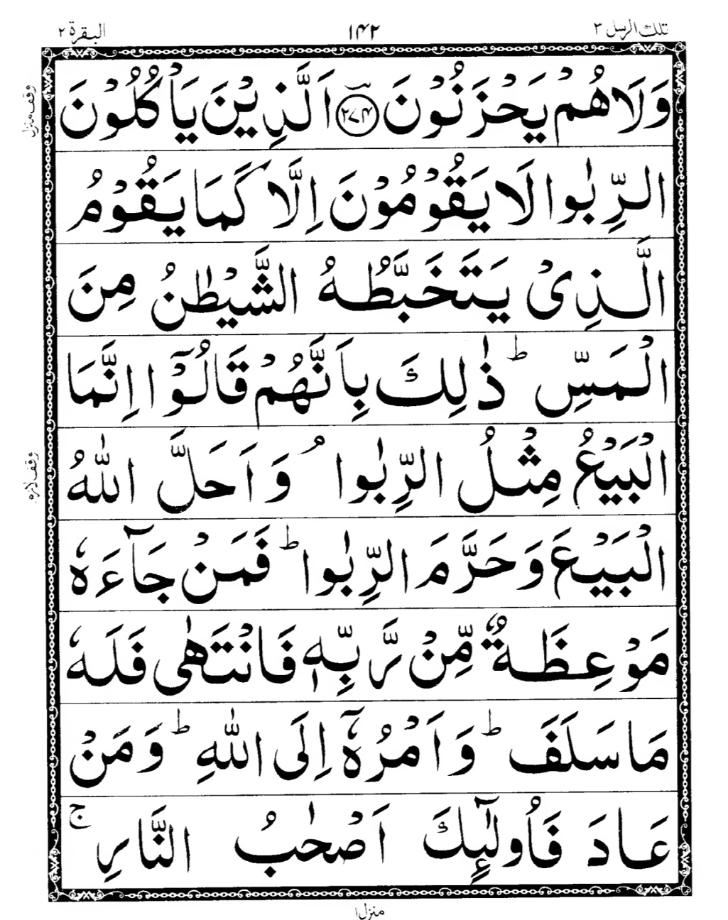 تلك الرسل ٣ ١٤٢ البقرة ٢
وَلَا هُمْ يَحْزَنُوْنَ ﴿۲۷۴﴾ اَلَّذِيْنَ يَاْكُلُوْنَ
الرِّبٰوا لَا يَقُوْمُوْنَ اِلَّا كَمَا يَقُوْمُ
الَّذِىْ يَتَخَبَّطُهُ الشَّيْطٰنُ مِنَ
الْمَسِّ ؕ ذٰلِكَ بِاَنَّهُمْ قَالُوْۤا اِنَّمَا
الْبَيْعُ مِثْلُ الرِّبٰوا ۘ وَاَحَلَّ اللّٰهُ
الْبَيْعَ وَحَرَّمَ الرِّبٰوا ؕ فَمَنْ جَآءَهٗ
مَوْعِظَةٌ مِّنْ رَّبِّهٖ فَانْتَهٰى فَلَهٗ
مَا سَلَفَ ؕ وَاَمْرُهٗۤ اِلَى اللّٰهِ ؕ وَمَنْ
عَادَ فَاُولٰٓئِكَ اَصْحٰبُ النَّارِ ۚ
وقف منزل
وقف لازم
منزل ١